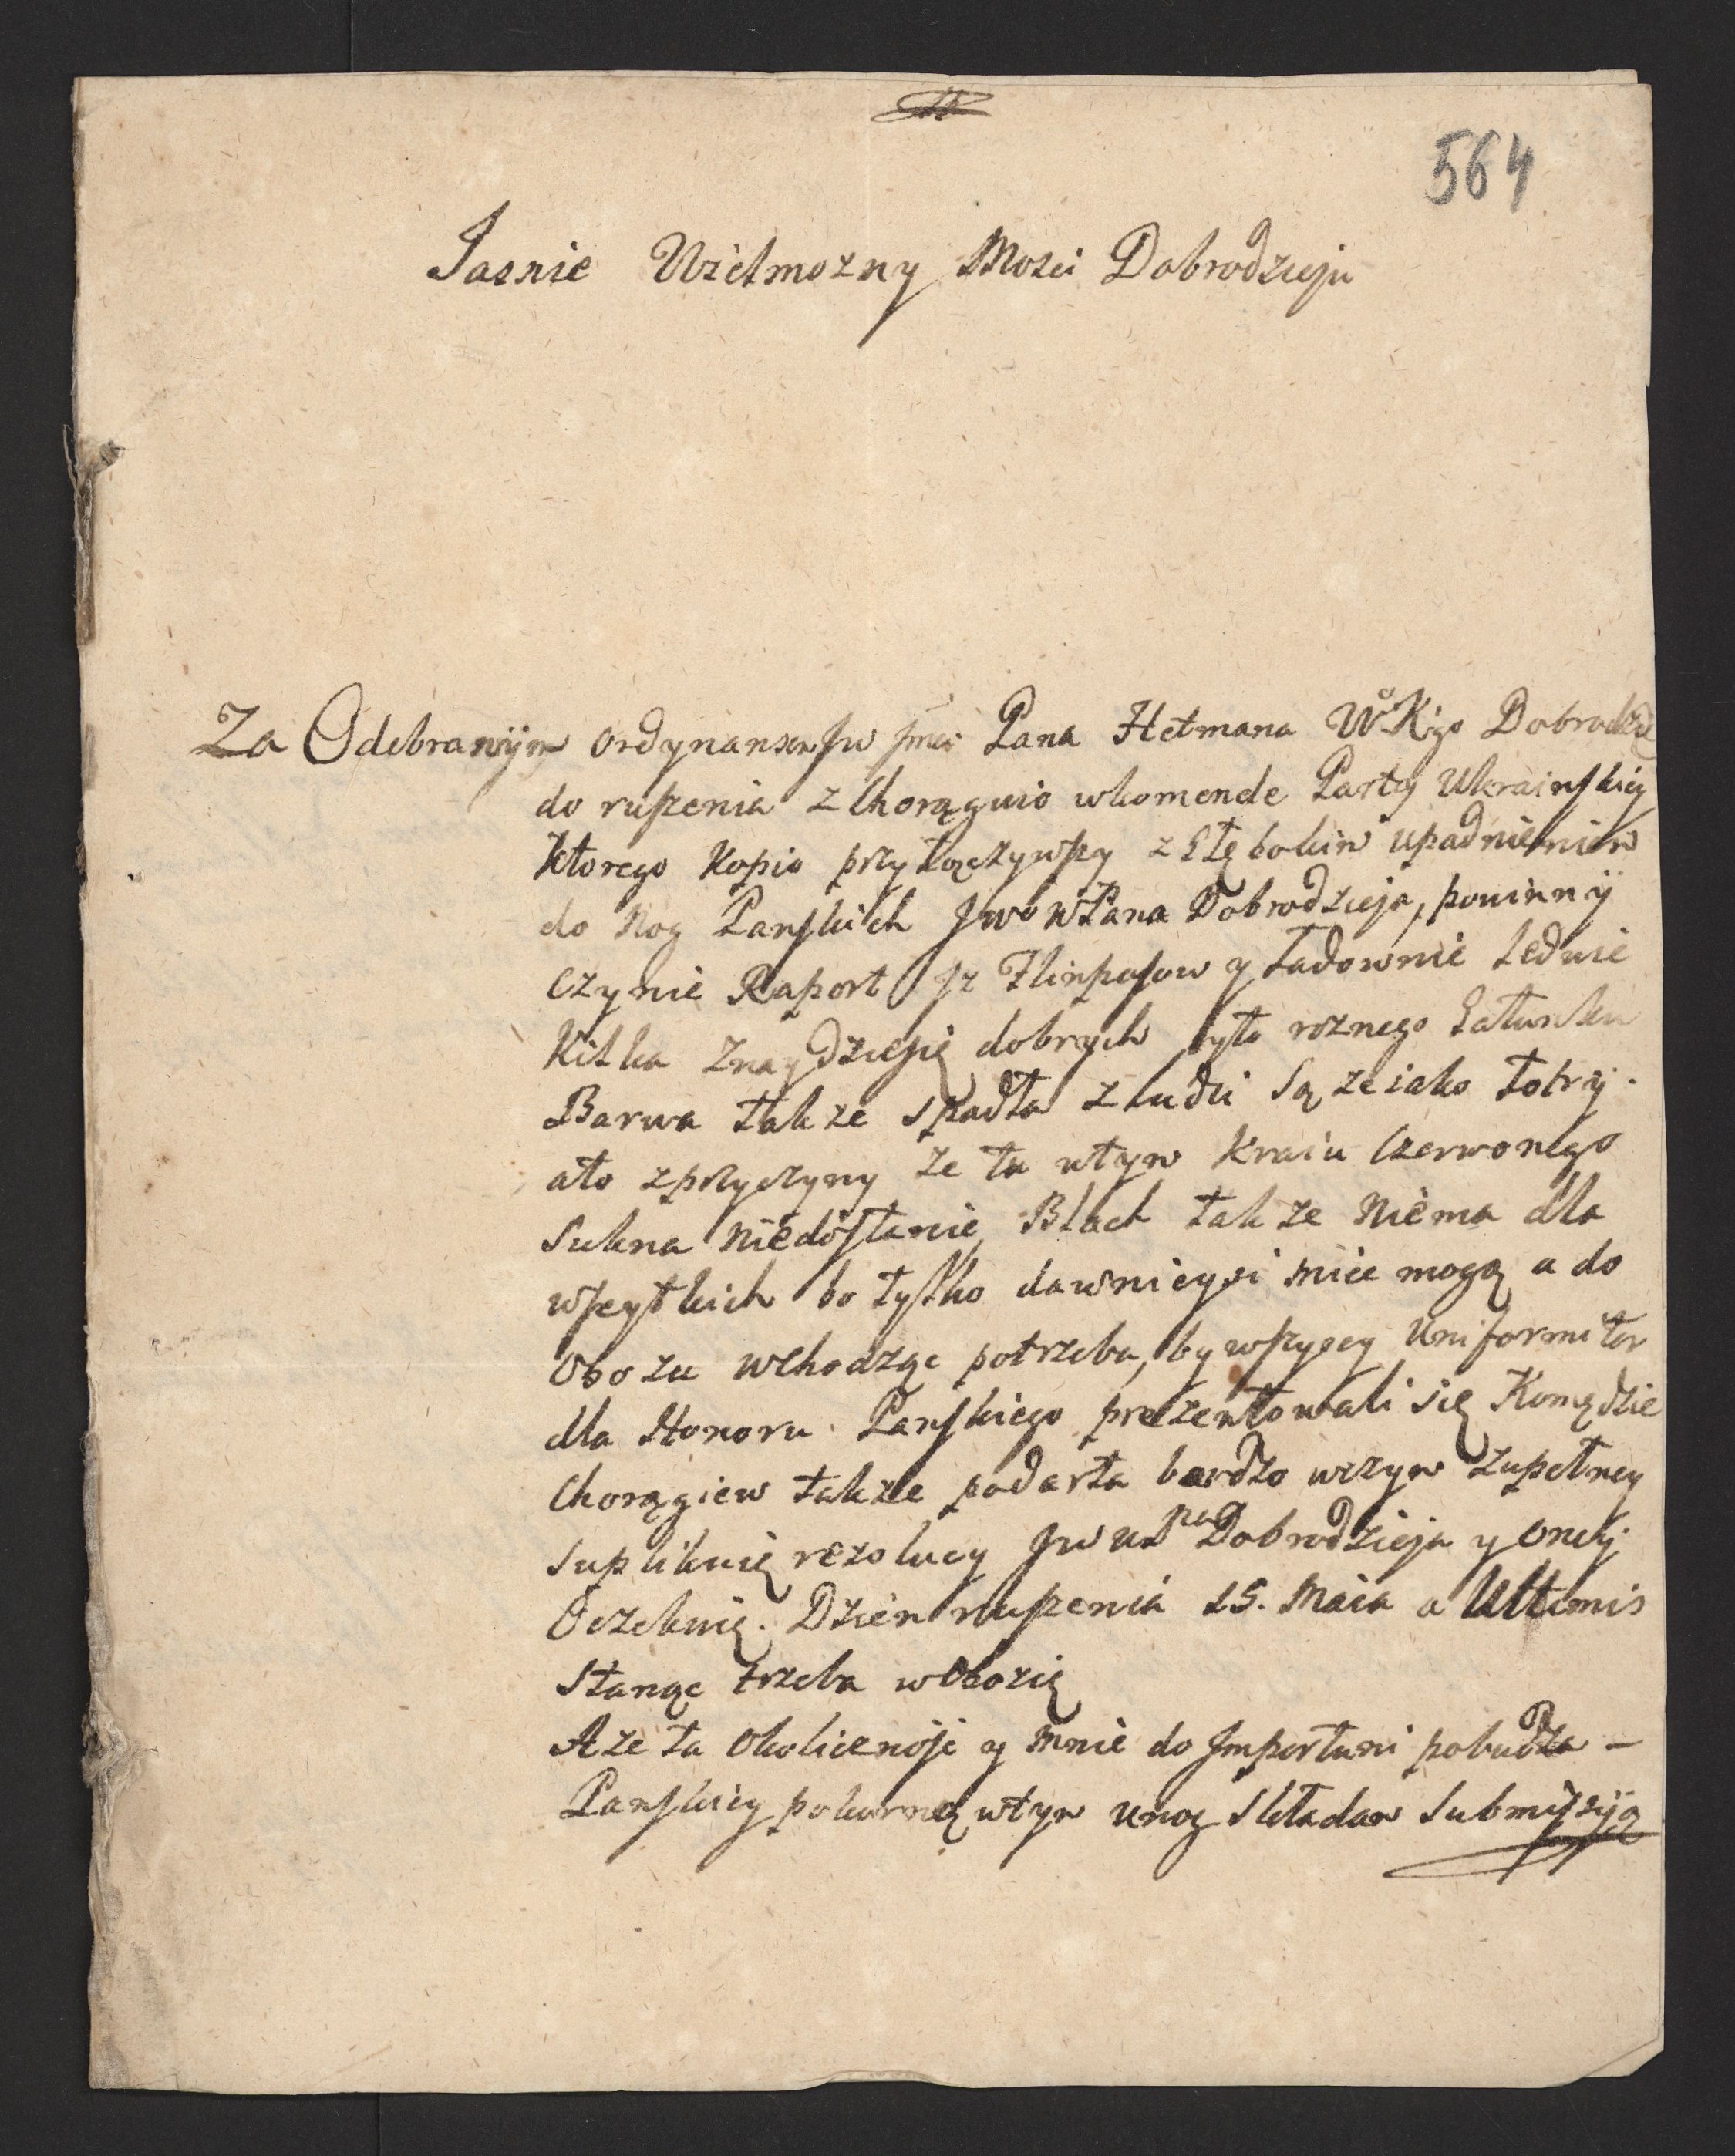 564
Jasnie Wielmozny Mosci Dobrodzieju
Za Odebranÿm ordynansem Jw Jmci Pana Hetmana WoKgo Dobrodzie
do ruszenia z Chorągwio wkomende Party Ukrainskiey
Ktorego Kopio przyłączywszy z Głębokim upadnieniem
do Nog Panskich Jwo WPana Dobrodzieja, powinnÿ
Czynie Raport Jz Flinpasow y Ładownic Ledwie
Kilka Znaydziesię dobrych y to roznego Gatunku
Barwa takze spadła z ludzi Są ze iako łotrzy
ato zprzyczyny ze tu wtym Kraiu Czerwonego
Sukna niedostanie, Blach takze niema dla
wszystkich bo tylko dawnieysi miec mogą a do
Obozu wchodząc potrzeba, by wszyscy Uniformiter
dla Honoru Panskiego prezentowali się Komędzie
Chorągiew takze podarta bardzo wczym zupełney
suplikuię rezolucy Jw WPna Dobrodzieja y oneÿ
Oczekuię. Dzien ruszenia 15. Maia a Ultimis
Stanąc trzeba wObozię
A ze ta Okolicznosc y mnie do Jmportuni pobudza –
Panskiey pokornę wtym unog Składam Submissÿą